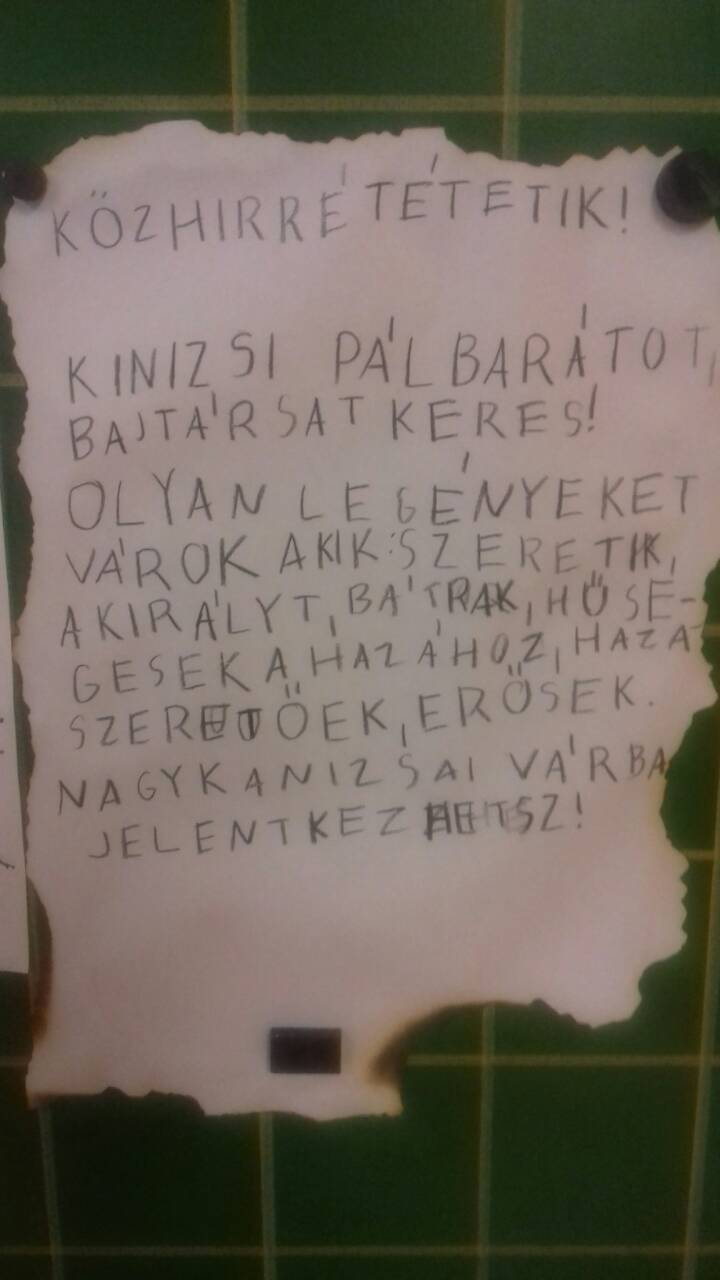 KÖZHIRRÉ TÉTETIK!
KINIZSI PÁL BARÁTOT,
BAJTÁRSAT KERES!
OLYAN LEGÉNYEKET
VÁROK AKIK: SZERETIK,
A KIRÁLYT, BÁTRAK, HŰSÉ-
GESEK A HAZÁHOZ, HAZA
SZERETŐEK, ERŐSEK.
NAGYKANIZSAI VÁRBA
JELENTKEZHETSZ!